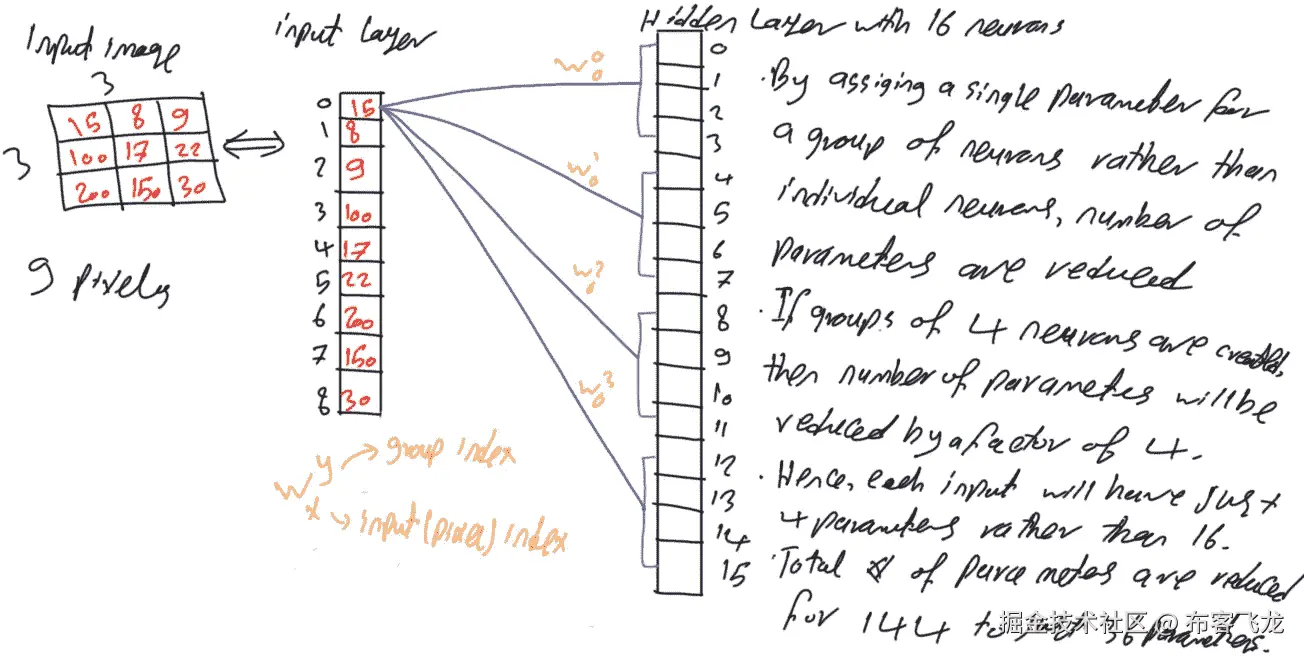 Input image
3
3
15 8 9
100 17 22
200 150 30
9 pixels
input Layer
0 15
1 8
2 9
3 100
4 17
5 22
6 200
7 150
8 30
w y → group index
x → input (pixel) index
w 0 0
w 0 1
w 0 2
w 0 3
Hidden Layer with 16 neurons
0
1
2
3
4
5
6
7
8
9
10
11
12
13
14
15
· By assiging a single parameter for
a group of neurons rather than
individual neurons, number of
parameters are reduced
· If groups of 4 neurons are created,
then number of parametes will be
reduced by a factor of 4.
· Hence, each input will have just
4 parameters rather than 16.
· Total # of parametes are reduced
for 144 to 36 parameters.
掘金技术社区 @ 布客飞龙